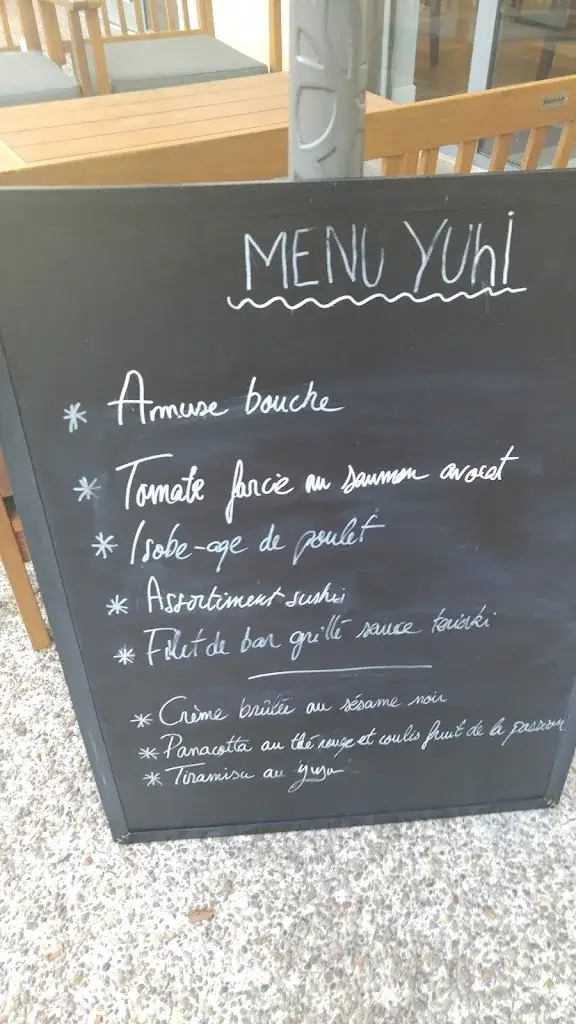 MENU YUhi
* Amuse bouche
* Tomate farcie au saumon avocat
* Isobe-age de poulet
* Assortiment sushi
* Filet de bar grillé sauce teriaki
* Crème brûlée au sésame noir
* Panacotta au thé rouge et coulis fruit de la passion
* Tiramisu au yuzu